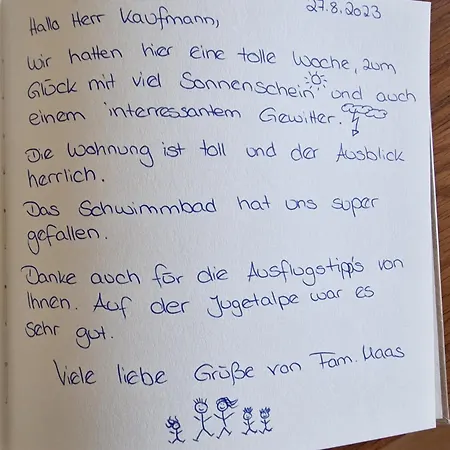 Hallo Herr Kaufmann,
27.8.2023
Wir hatten hier eine tolle Woche, zum
Glück mit viel Sonnenschein und auch
einem interressantem Gewitter.
Die Wohnung ist toll und der Ausblick
herrlich.
Das Schwimmbad hat uns super
gefallen.
Danke auch für die Ausflugstipp's von
Ihnen. Auf der Jugetalpe war es
sehr gut.
Viele liebe Grüße von Fam. Haas